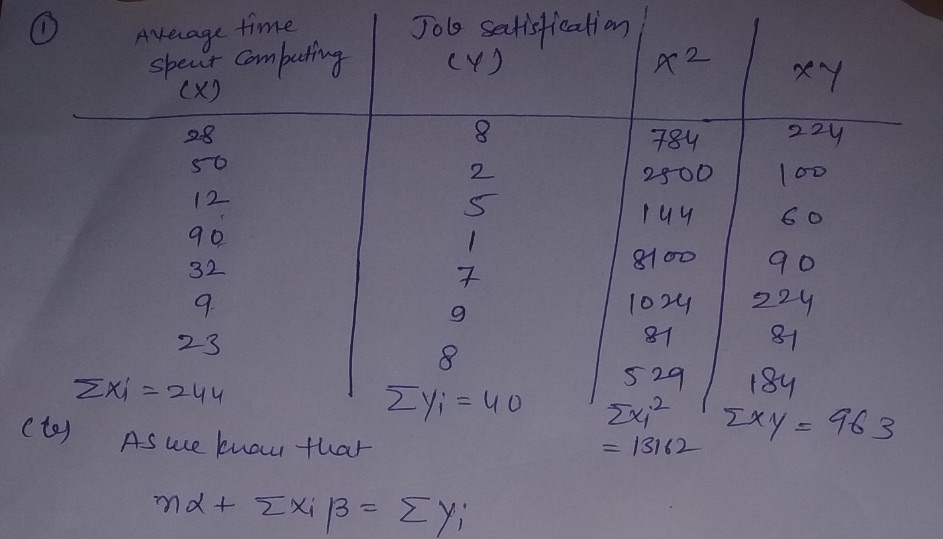 ① Average time spent computing (X) | Job satisfication (Y) | x2 | xy
28 | 8 | 784 | 224
50 | 2 | 2500 | 100
12 | 5 | 144 | 60
90 | 1 | 8100 | 90
32 | 7 | 1024 | 224
9 | 9 | 81 | 81
23 | 8 | 529 | 184
Σxi = 244 | Σyi = 40 | Σxi² = 13162 | Σxy = 963
As we know that
nα + Σxi β = Σyi